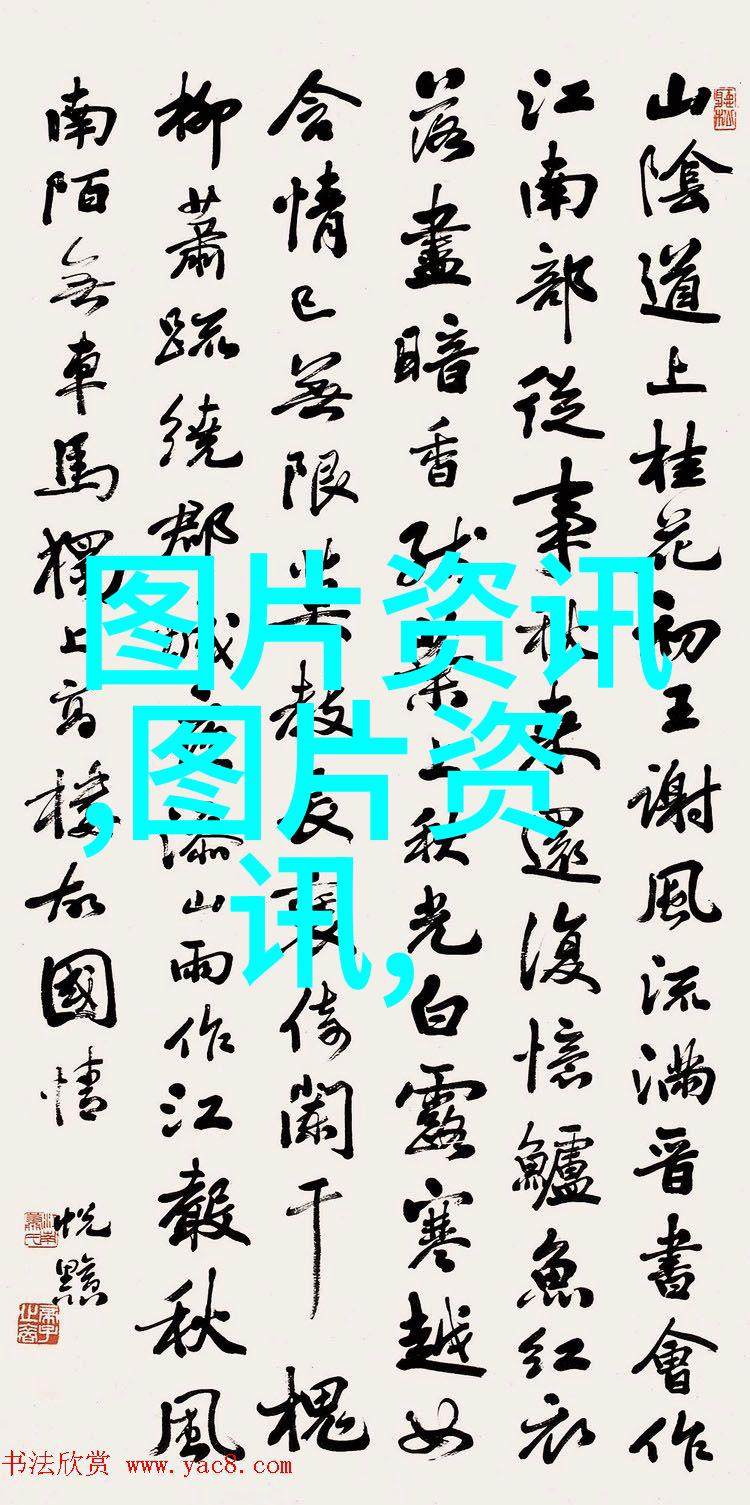 山陰道上桂花初王謝風流滿晉書會作
江南部從事秋來還復憶鱸魚紅衣
落盡暗香殘葉上秋光白露寒越女
含情已無限莫教長袖倚闌干 槐
柳蕭疏繞郡城夜添山雨作江聲秋風
南陌無車馬獨上高樓故國情
图片资讯
,图片资
讯,
书法欣赏 www.yac8.com